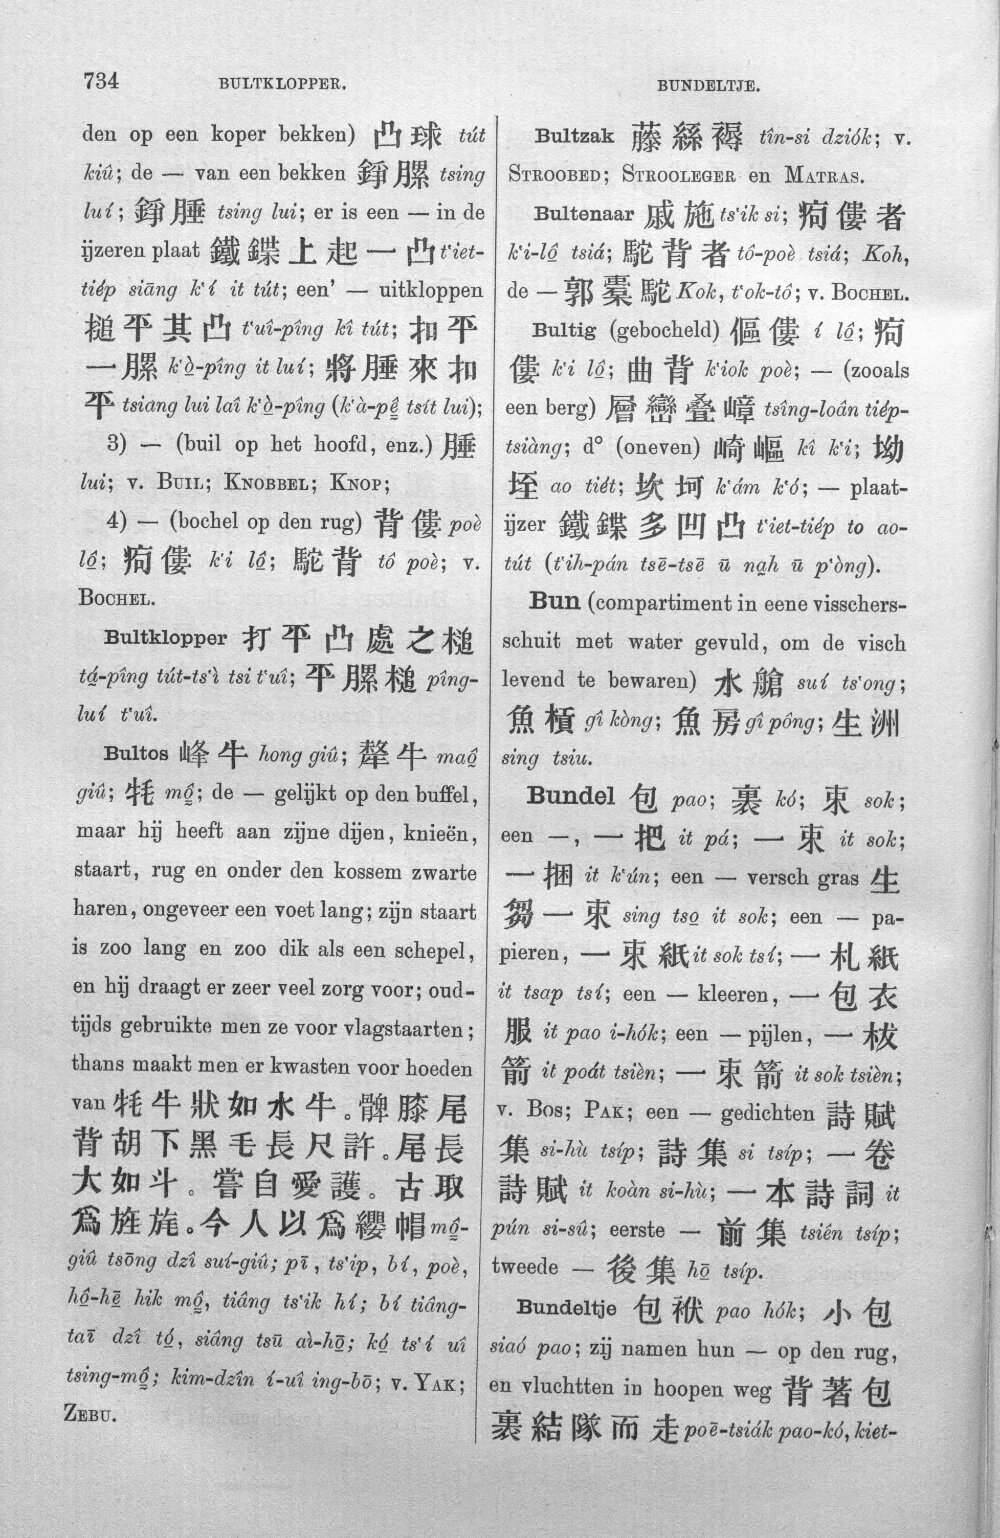 734 BULTKLOPPER. BUNDELTJE.
den op een koper bekken) 凸球 tút
kiû; de — van een bekken 錚腂 tsing
luí; 錚腄 tsing lui; er is een — in de
ijzeren plaat 鐵鍱上起一凸 t‘iet-
tiép siāng k‘í it tút; een’ — uitkloppen
搥平其凸 t‘uî-pîng kî tút; 扣平
一腂 k‘ò̤-pîng it luí; 將腄來扣
平 tsiang lui laî k‘ò̤-pîng (k‘à-pê̤ tsít lui);
3) — (buil op het hoofd, enz.) 腄
lui; v. BUIL; KNOBBEL; KNOP;
4) — (bochel op den rug) 背僂 poè
lô̤; 痀僂 k‘i lô̤; 駝背 tô poè; v.
BOCHEL.
Bultklopper 打平凸處之槌
tá̤-pîng tút-ts‘ì tsi t‘uî; 平腂槌 pîng-
luí t‘uî.
Bultos 峰牛 hong giû; 犛牛 maô̤
giû; 牦 mô̤; de — gelijkt op den buffel,
maar hij heeft aan zijne dijen, knieën,
staart, rug en onder den kossem zwarte
haren, ongeveer een voet lang; zijn staart
is zoo lang en zoo dik als een schepel,
en hij draagt er zeer veel zorg voor; oud-
tijds gebruikte men ze voor vlagstaarten;
thans maakt men er kwasten voor hoeden
van 牦牛狀如水牛。髀膝尾
背胡下黑毛長尺許。尾長
大如斗。嘗自愛護。古取
爲旌旄。今人以爲纓帽 mô̤-
giû tsōng dzî suí-giû; pī, ts‘ip, bí, poè,
hô̤-hē̤ hik mô̤, tiâng ts‘ik hí; bí tiâng-
taī dzî tó̤, siâng tsū aì-hō̤; kó̤ ts‘í uî
tsing-mô̤; kim-dzîn í-uî ing-bō; v. YAK;
ZEBU.
Bultzak 藤絲褥 tîn-si dziók; v.
STROOBED; STROOLEGER en MATRAS.
Bultenaar 戚施 ts‘ik si; 痀僂者
k‘i-lô̤ tsiá; 駝背者 tô-poè tsiá; Koh,
de — 郭橐駝 Kok, t‘ok-tô; v. BOCHEL.
Bultig (gebocheld) 傴僂 í lô̤; 痀
僂 k‘i lô̤; 曲背 k‘iok poè; — (zooals
een berg) 層巒叠嶂 tsîng-loân tiép-
tsiàng; d° (oneven) 崎嶇 kî k‘i; 坳
垤 ao tiét; 坎坷 k‘ám k‘ó; — plaat-
ijzer 鐵鍱多凹凸 t‘iet-tiép to ao-
tút (t‘ih-pán tsē-tsē ū na̤h ū p‘òng).
Bun (compartiment in eene visschers-
schuit met water gevuld, om de visch
levend te bewaren) 水艙 suí ts‘ong;
魚槓 gî kòng; 魚房 gî pông; 生洲
sing tsiu.
Bundel 包 pao; 裹 kó; 束 sok;
een —, 一把 it pá; 一束 it sok;
一捆 it k‘ún; een — versch gras 生
芻一束 sing tso̤ it sok; een — pa-
pieren, 一束紙 it sok tsí; 一札紙
it tsap tsí; een — kleeren, 一包衣
服 it pao i-hók; een — pijlen, 一
箭 it poát tsièn; 一束箭 it sok tsièn;
v. BOS; PAK; een — gedichten 詩賦
集 si-hù tsíp; 詩集 si tsíp; 一卷
詩賦 it koàn si-hù; 一本詩詞 it
pún si-sû; eerste — 前集 tsiên tsíp;
tweede — 後集 hō̤ tsíp.
Bundeltje 包袱 pao hók; 小包
siaó pao; zij namen hun — op den rug,
en vluchtten in hoopen weg 背著包
裹結隊而走 poē-tsiák pao-kó, kiet-